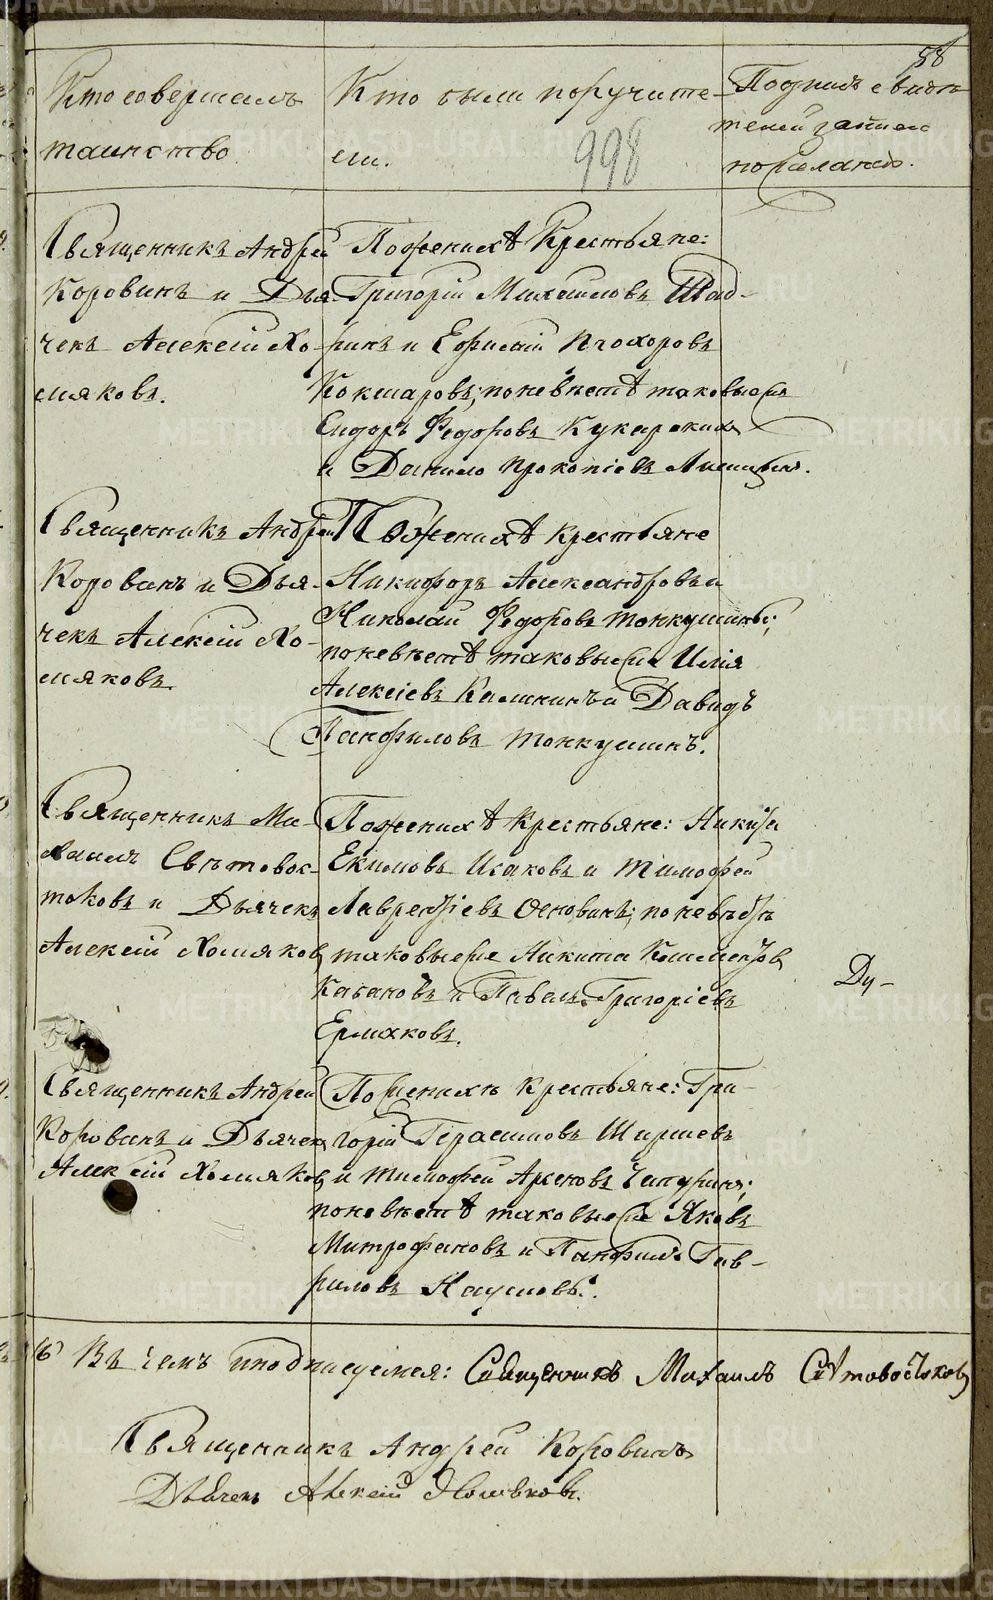 58
Кто совершалъ
таинство
Кто были поручите-
ли.
998
Подпись свидѣ-
телей записи
по желанію.
Священникъ Андрей
Коровинъ и Дья-
чекъ Алексѣй Хо-
мяковъ.
По женихѣ Крестьяне:
Григорій Михайловъ Шад-
ринъ и Ефимій Прохоровъ
Кокшаровъ; по невѣстѣ таковые же
Сидоръ Федоровъ Кукарскихъ
и Данило Прокопіевъ
Священникъ Андрей
Коровинъ и Дья-
чекъ Алексѣй Хо-
мяковъ
По женихѣ крестьяне
Никифоръ Александровъ и
Николай Федоровъ Тонкушины;
по невѣстѣ таковые же Илія
Алексіевъ Калининъ и Давидъ
Панфиловъ Тонкушинъ.
Священникъ Ми-
хаилъ Свѣтовос-
токовъ и Дьячекъ
Алексѣй Хомяковъ
По женихѣ Крестьяне: Никита
Екимовъ Исаковъ и Тимофей
Лаврентіевъ Основинъ; по невѣстѣ
таковые же Никита Климентовъ
Кабановъ и Павелъ Григоріевъ
Ермаковъ.
Ду-
Священникъ Андрей
Коровинъ и Дьячекъ
Алексѣй Хомяковъ
По женихѣ крестьяне: Гри-
горій Герасимовъ Ширшевъ
и Тимофей Арефовъ Чапуринъ;
по невѣстѣ таковые же Яковъ
Митрофановъ и Панфилъ Гав-
риловъ Наумовы.
Въ чемъ и подписуемся: Священникъ Михаилъ Свѣтовостоковъ
Священникъ Андрей Коровинъ
Дьячекъ Алексѣй Хомяковъ.
METRIKI.GASU-URAL.RU